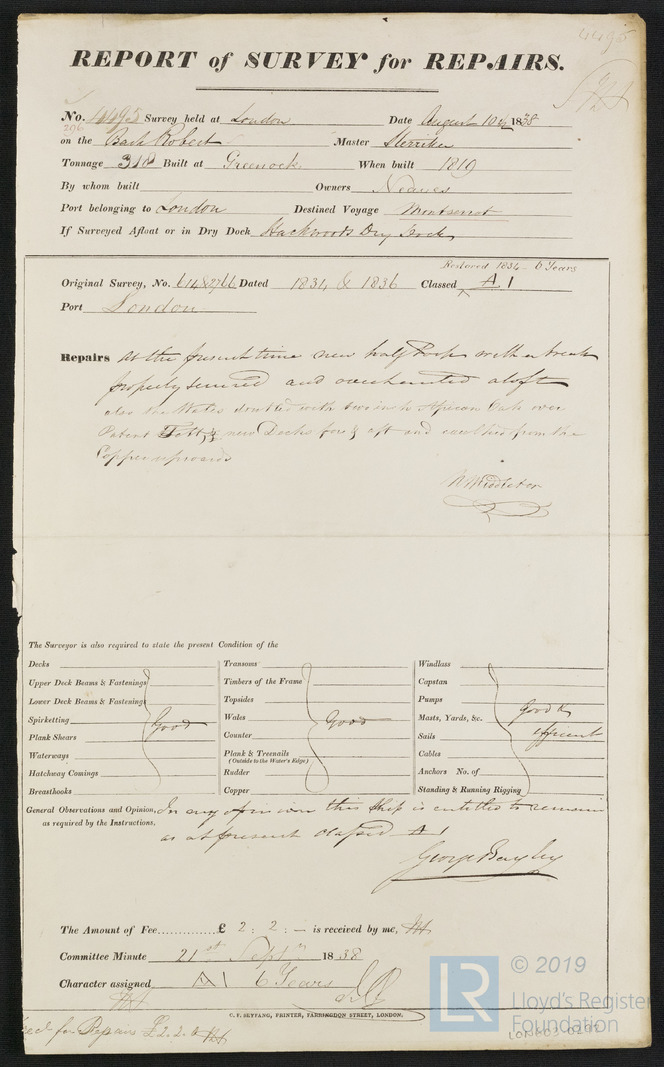 4495
REPORT of SURVEY for REPAIRS.
No. 4495 Survey held at London Date August 10th 1838
206
on the Bark Robert Master
Tonnage 318 Built at Greenock When built 1819
By whom built Owners Neaves
Port belonging to London Destined Voyage Montserrat
If Surveyed Afloat or in Dry Dock Hackwoods Dry Dock
Restored 1834 - 6 Years
Original Survey, No. Dated 1834 & 1836 Classed A 1
Port London
Repairs at the present time new half Poop with a break
properly secured and overhauled aloft
also the Wales doubled with two inch African Oak over
Patent Felt, & new Decks fore & aft and caulked from the
Copper upwards
W Middleton
The Surveyor is also required to state the present Condition of the
Decks Transoms Windlass
Upper Deck Beams & Fastenings Timbers of the Frame Capstan
Lower Deck Beams & Fastenings Topsides Pumps
Spirketting Good Wales Good Masts, Yards, &c. Good &
Plank Shears Counter Sails efficient
Waterways Plank & Treenails Cables
(Outside to the Water's Edge)
Hatchway Comings Rudder Anchors No. of
Breasthooks Copper Standing & Running Rigging
General Observations and Opinion, In my opinion this Ship is entitled to remain
as required by the Instructions. as at present classed A 1
George Bayley
The Amount of Fee............£ 2 : 2 : — is received by me,
Committee Minute 21st Septr 1838
Character assigned A 1 6 Years
C. F. SEYFANG, PRINTER, FARRINGDON STREET, LONDON.
for Repairs £2.2.0
LR © 2019
Lloyd's Register
Foundation